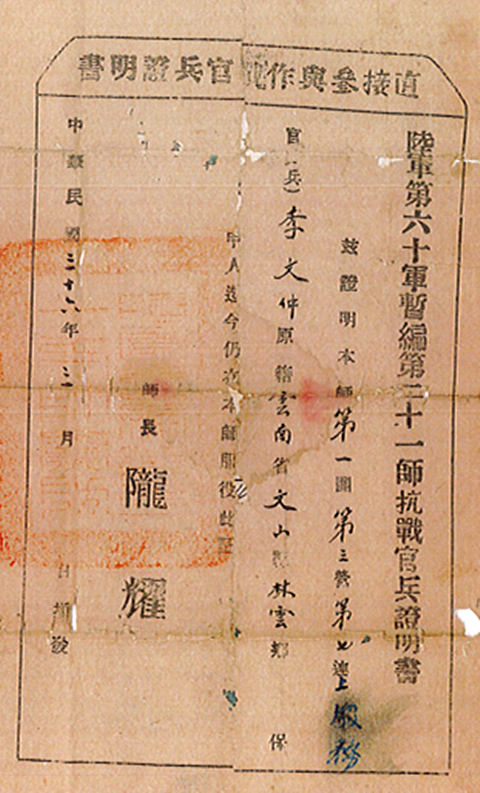 直接參與作戰官兵證明書
陸軍第六十軍暫編第二十一師抗戰官兵證明書
茲證明本師第一團第三營第七連上服務
官(兵)李文仲原籍雲南省文山縣林雲鄉 保
甲人迄今仍在本師服役此證
師長 隴耀
中華民國三十六年三月 日填發